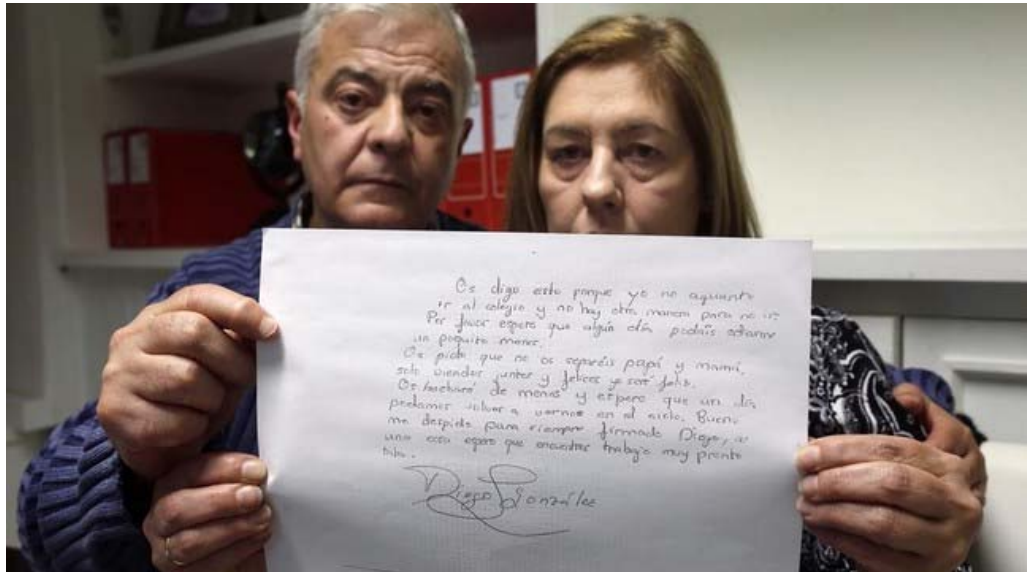 Os digo esto porque yo no aguanto
ir al colegio y no hay otra manera para no ir
Por favor espero que algún día podáis odiarme
un poquito menos.
Os pido que no os separéis papá y mamá,
solo viendoos juntos y felices yo seré feliz.
Os hecharé de menos y espero que un día
podamos volver a vernos en el cielo. Bueno
me despido para siempre firmado Diego, a
una cosa espero que encuentres trabajo muy pronto
Diego González